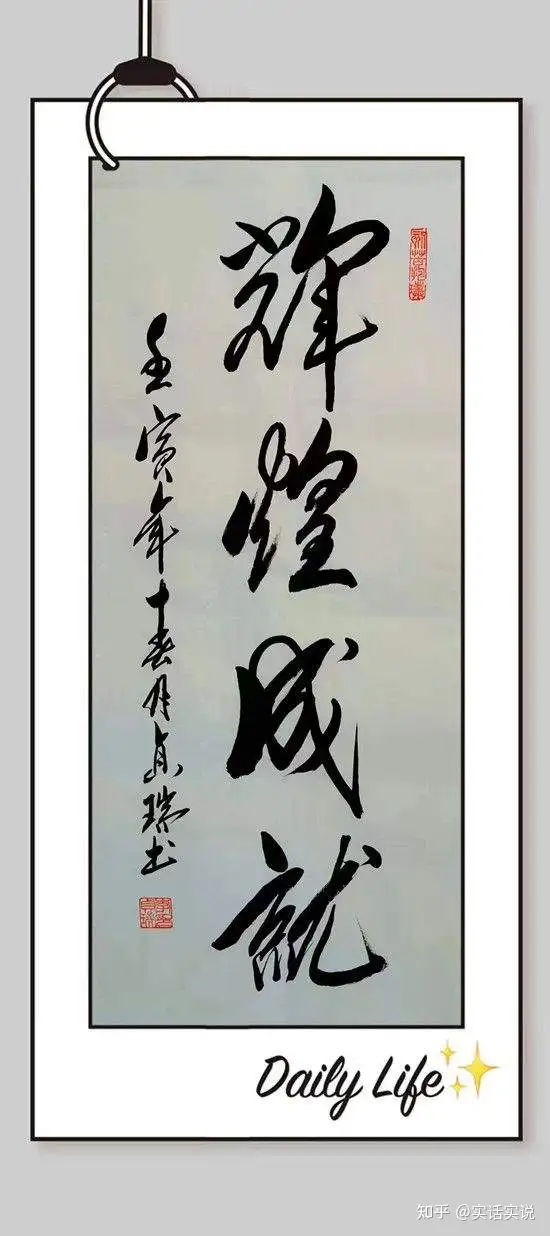 辉煌成就
壬寅年十月贞瑞书
Daily Life
知乎 @实话实说